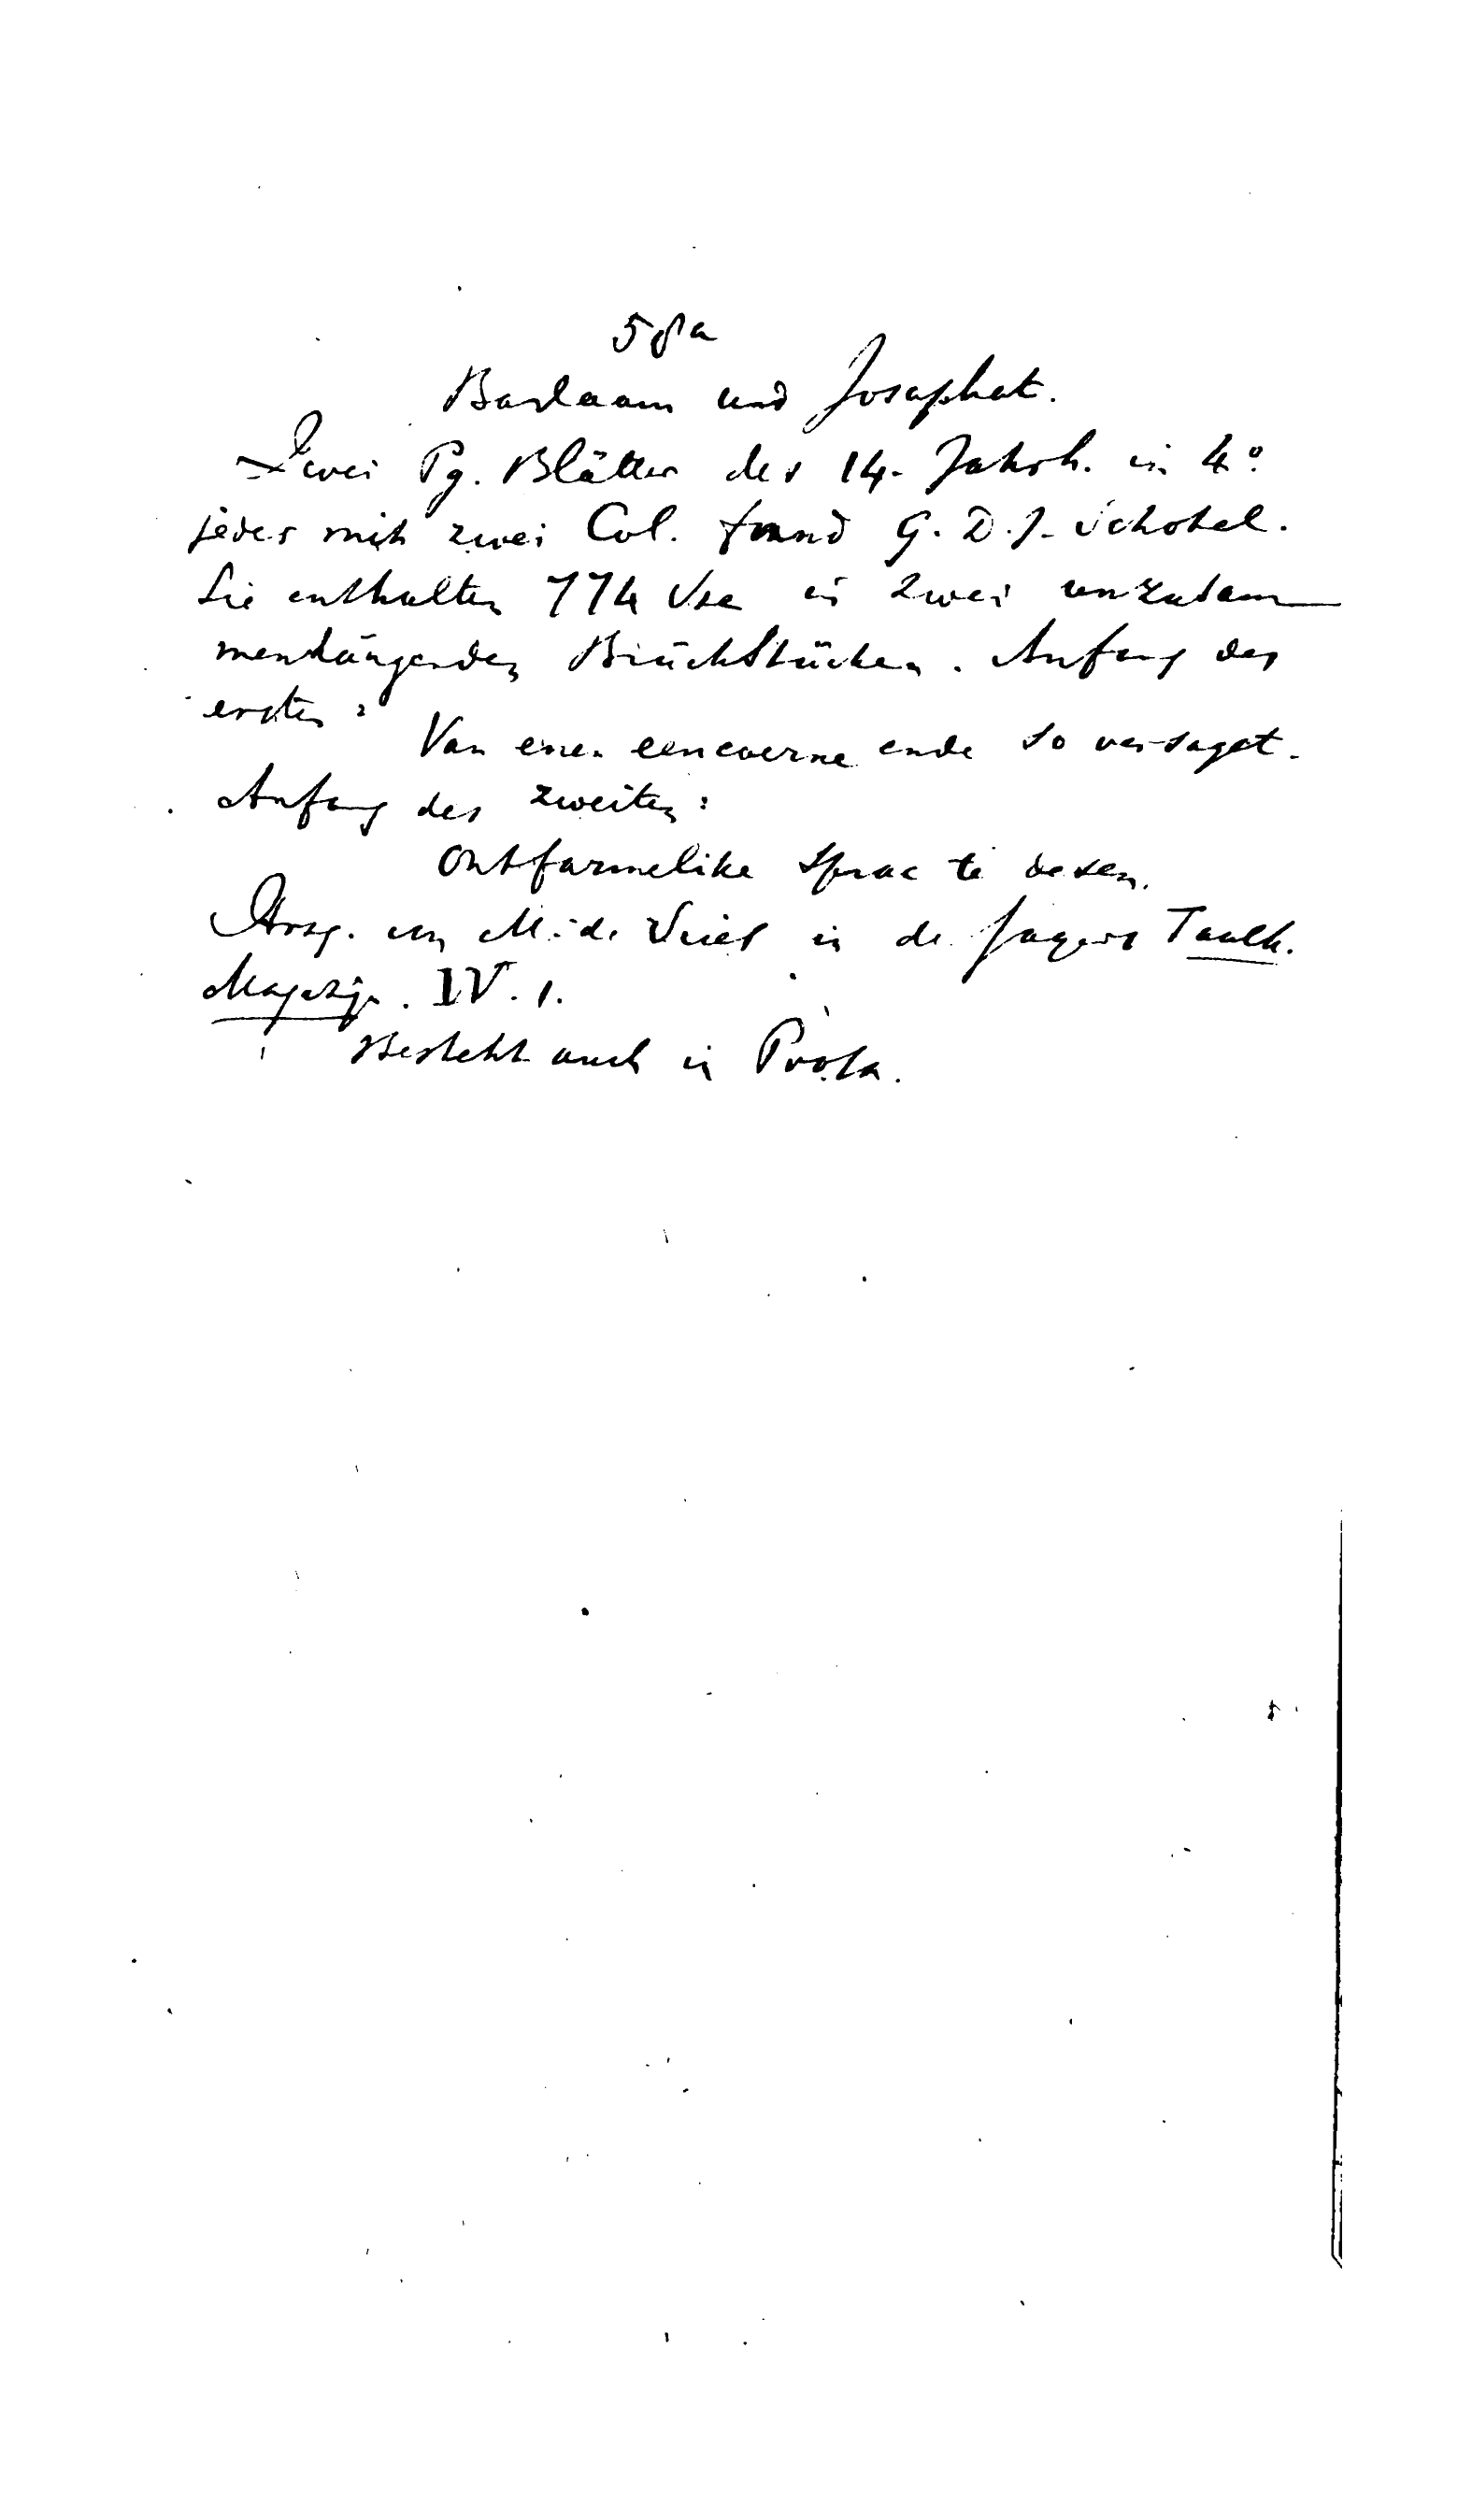 58a
Barlaam und Josaphat.
Zwei Pg. Blätter des 14. Jahrh. in 4°.
jedes mit zwei Col. fand G. D. J. Schotel.
Sie enthalten 774 Vse in zwei unzusam
menhängenden Bruchstücken. Anfang des
ersten:
Van enen eencorne ende so versaget.
Anfang des zweiten:
Ontfarmelike sprac te desen.
Hrsg. von M. de Vries in de Jagers Taalk.
Magazijn. IV. 1.
Besteht auch in Prosa.